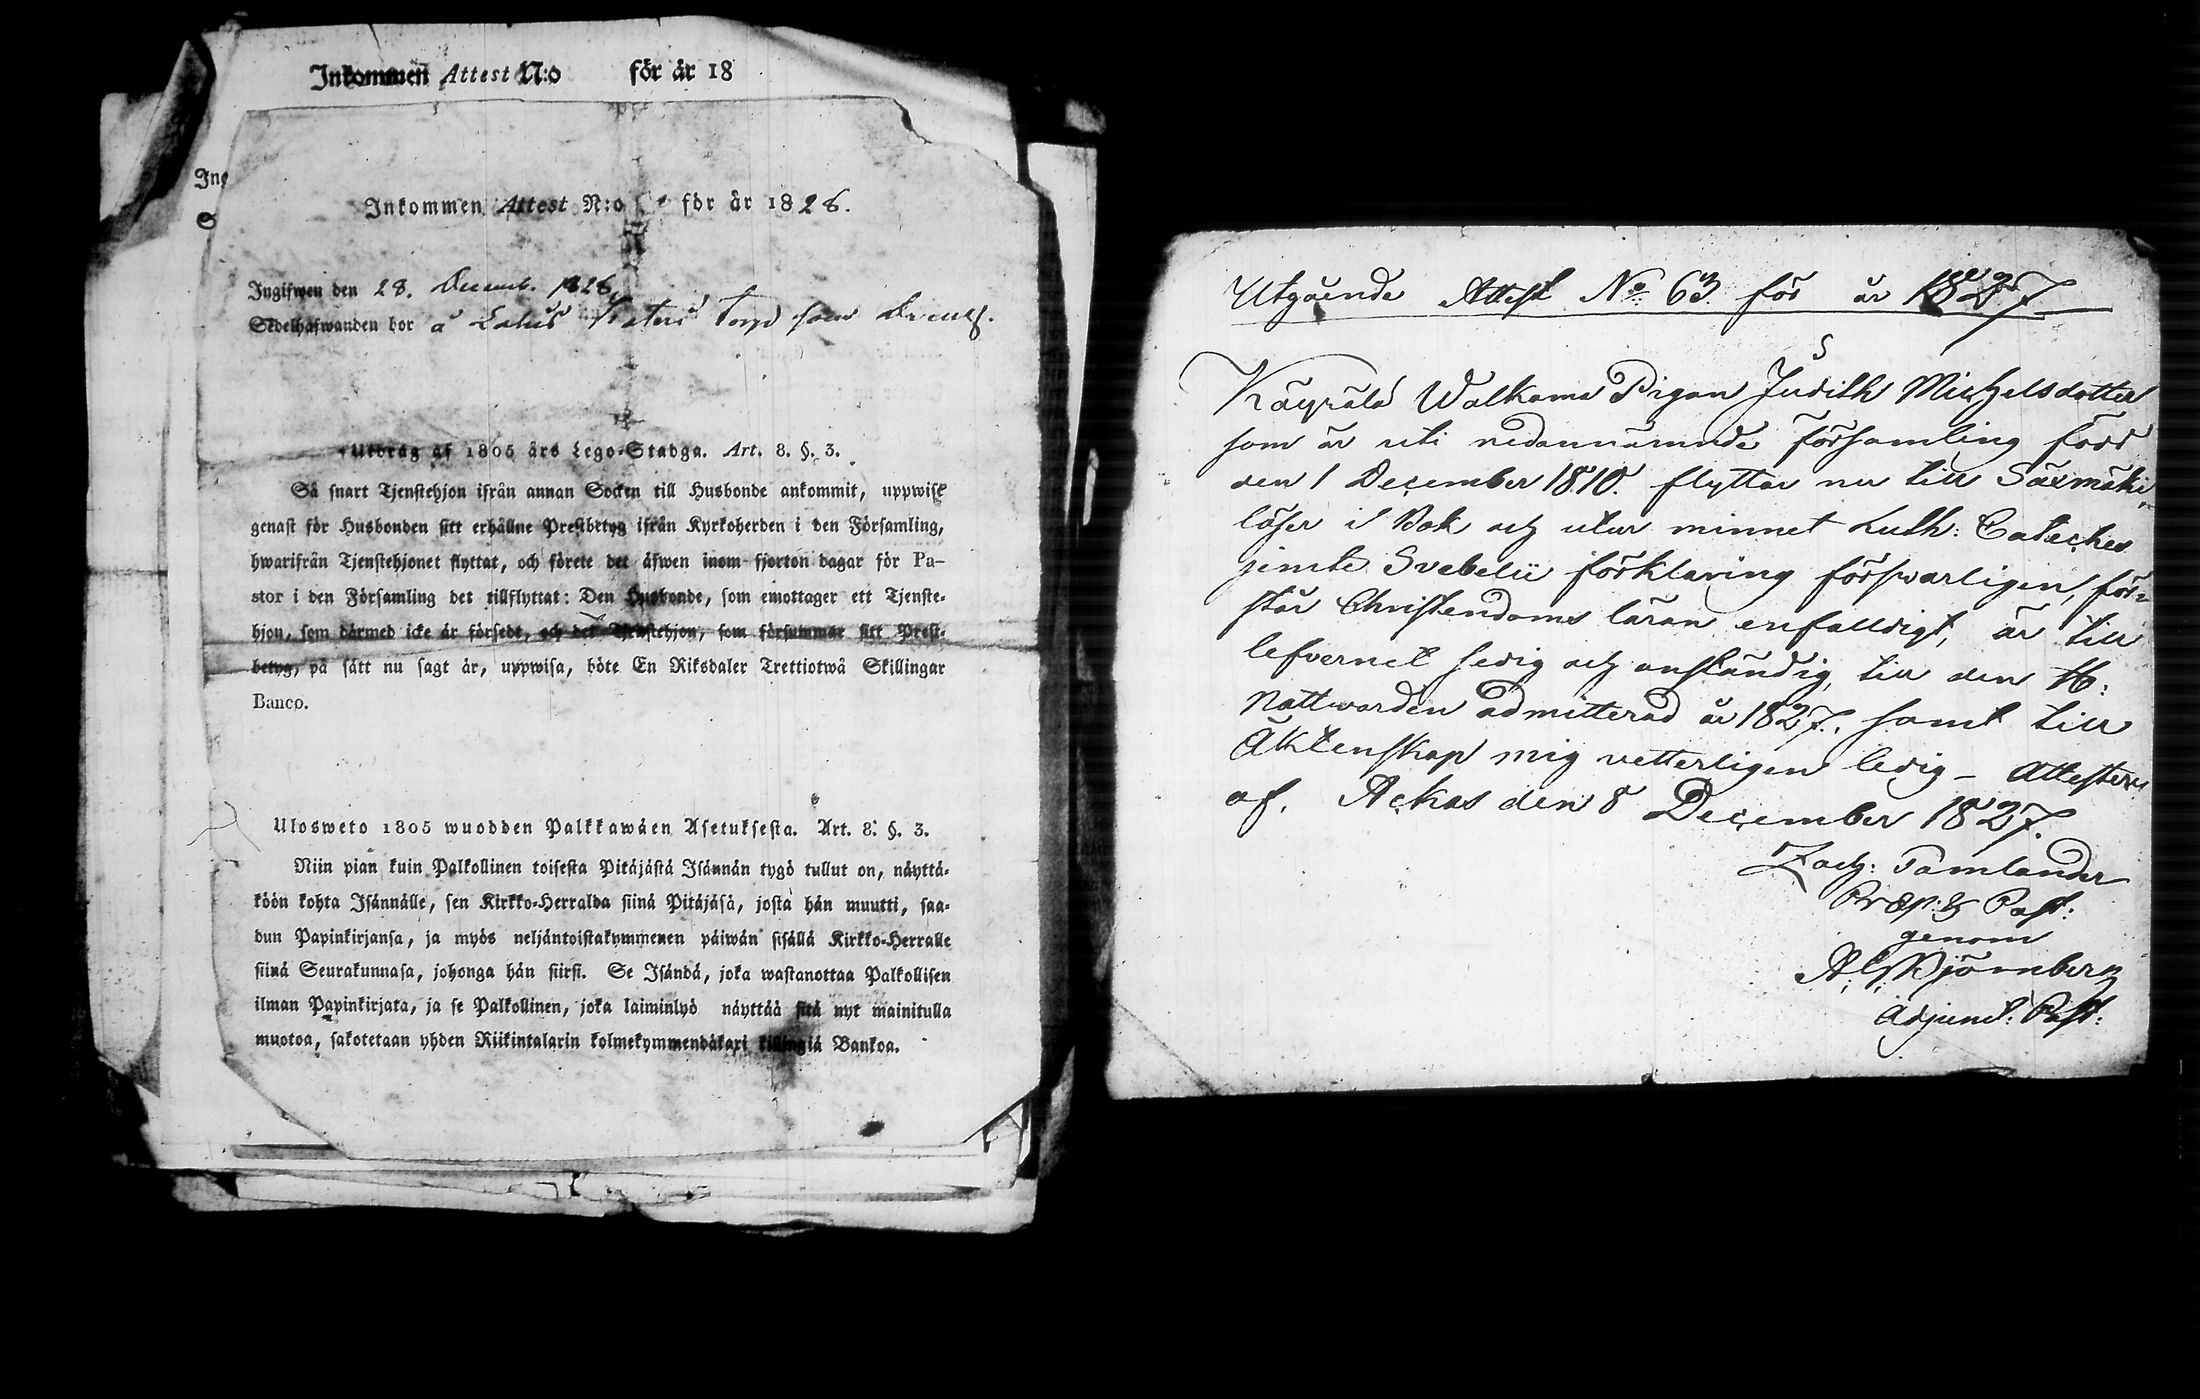 Inkommen Attest N:o för år 18
Ing
S
Inkommen Attest N:o för år 1828.
Ingifwen den 28. Decemb. 1828
Sedelhafwanden bor å Torp som
Utdrag af 1805 års Lego-Stadga. Art. 8. §. 3.
Så snart Tjenstehjon ifrån annan Socken till Husbonde ankommit, uppwise
genast för Husbonden sitt erhållne Prestbetyg ifrån Kyrkoherden i den Församling,
hwarifrån Tjenstehjonet flyttat, och förete det äfwen inom fjorton dagar för Pa-
stor i den Församling det tillflyttat: Den Husbonde, som emottager ett Tjenste-
hjon, som därmed icke är försedt, och det Tjenstehjon, som försummar sitt Prest-
betyg, på sätt nu sagt är, uppwisa, böte En Riksdaler Trettiotwå Skillingar
Banco.
Ulosweto 1805 wuodden Palkkawäen Asetuksesta. Art. 8. §. 3.
Niin pian kuin Palkollinen toisesta Pitäjästä Isännän tygö tullut on, näyttä-
köön kohta Isännälle, sen Kirkko-Herralda siinä Pitäjäsä, josta hän muutti, saa-
dun Papinkirjansa, ja myös neljäntoistakymmenen päiwän sisällä Kirkko-Herralle
siinä Seurakunnasa, johonga hän siirsi. Se Isändä, joka wastanottaa Palkollisen
ilman Papinkirjata, ja se Palkollinen, joka laiminlyö näyttää sitä nyt mainitulla
muotoa, sakotetaan yhden Riikintalarin kolmekymmendäkaxi killingiä Bankoa.
Utgående Attest No 63 för år 1827.
Wälkomne Pigan Judith Michelsdotter
som är uti nedannämnde församling född
den 1 December 1810. flyttar nu till Säxmäki,
läser i Bok och utur minnet Luth: Cateches
jemte Svebelii förklaring försvarligen, för=
står Christendoms läran enfalldigt, är till
lefvernet sedig och anständig, till den H:
Nattwarden admitterad år 1827., samt till
Äktenskap mig vetterligen ledig – Attesteras
af. Ackas den 8 December 1827.
Zach: Tamlander
Præp: & Past:
genom
Björnberg
Adjunct: Past: